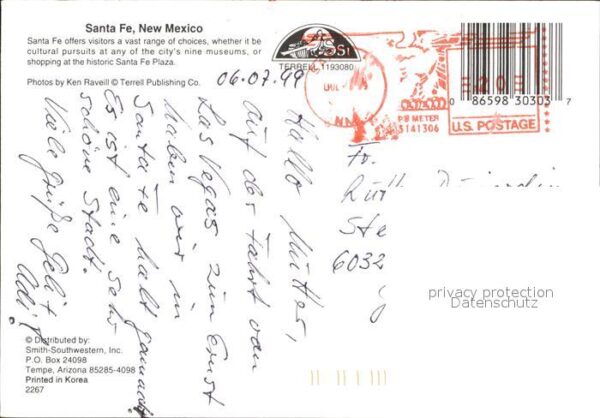 Santa Fe, New Mexico
Santa Fe offers visitors a vast range of choices, whether it be
cultural pursuits at any of the city's nine museums, or
shopping at the historic Santa Fe Plaza.
Photos by Ken Raveill © Terrell Publishing Co.
TERRELL 1193080
06.07.99
Hallo Mutter,
auf der Fahrt von
Las Vegas zum
haben wir in
Santa Fe halt gemacht.
Es ist eine sehr
schöne Stadt.
Viele grüße
PB METER
3141306
U.S. POSTAGE
0 86598 30303 7
Fr.
Ste
6032
privacy protection
Datenschutz
© Distributed by:
Smith-Southwestern, Inc.
P.O. Box 24098
Tempe, Arizona 85285-4098
Printed in Korea
2267